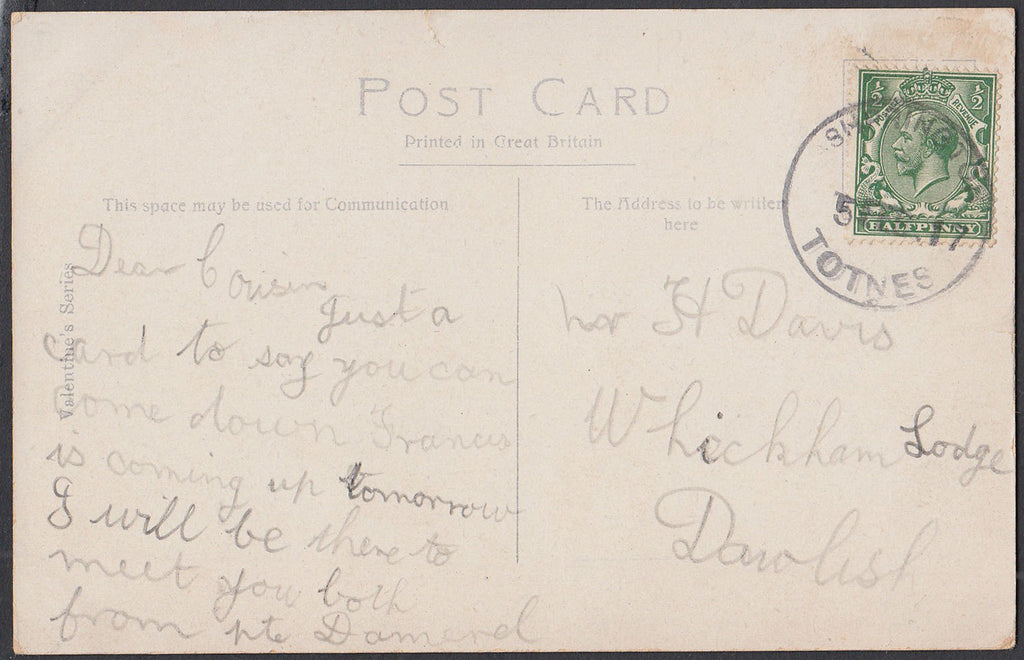 POST CARD
Printed in Great Britain
This space may be used for Communication
The Address to be written
here
Valentine's Series
½ ½
POSTAGE REVENUE
HALFPENNY
17
TOTNES
Dear Cousin
Just a
card to say you can
come down Francis
is coming up tomorrow
I will be there to
meet you both
from pte Damerel
H Davis
Whickham Lodge
Dawlish